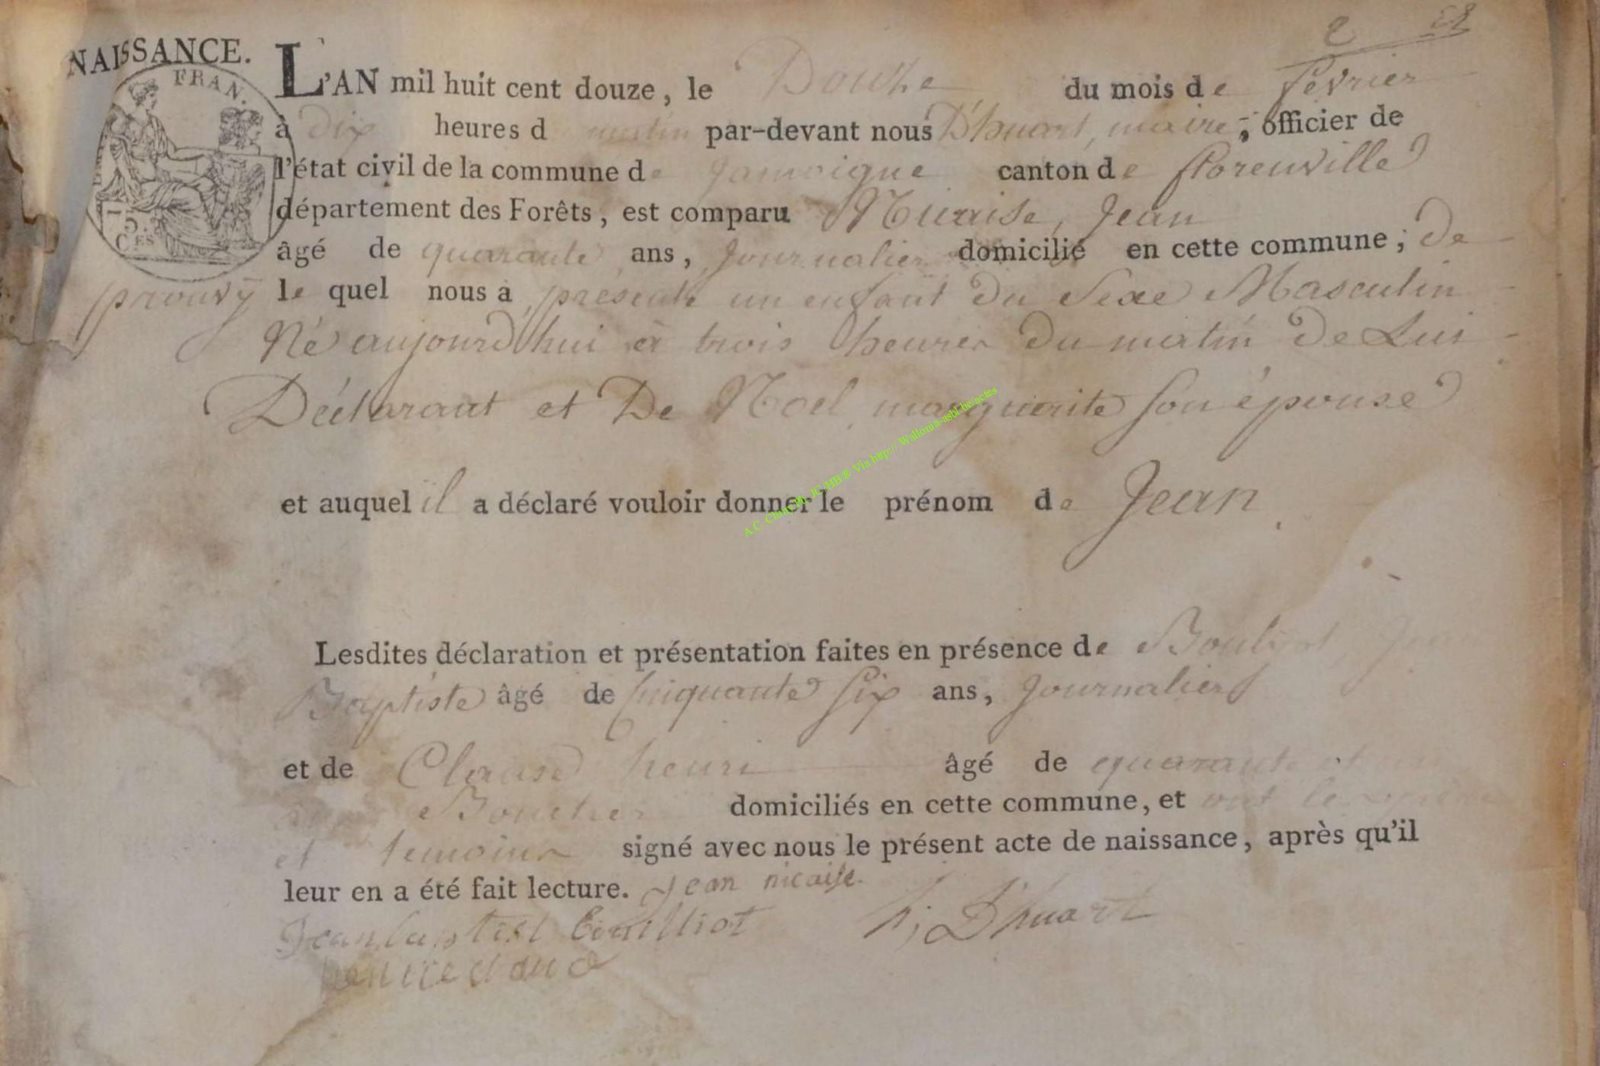 2
NAISSANCE.
FRAN.
75.
CES
L'AN mil huit cent douze, le Douze du mois de fevrier
à dix heures d matin par-devant nous D'huart, maire, officier de
l'état civil de la commune de Jamoigne canton de florenville
département des Forêts, est comparu Nicaise, Jean
âgé de quarante ans, Journalier domicilié en cette commune, de
prouvy le quel nous a presenté un enfant du Sexe Masculin
Né aujourd'hui à trois heures du matin de Lui
Déclarant et De Noel, marguerite son épouse
et auquel il a déclaré vouloir donner le prénom de Jean
Lesdites déclaration et présentation faites en présence de
Baptiste âgé de cinquante six ans, Journalier
et de Clause henri âgé de quarante et
domiciliés en cette commune, et ont le
et temoins signé avec nous le présent acte de naissance, après qu'il
leur en a été fait lecture. Jean nicaise
Jean batist D'huart